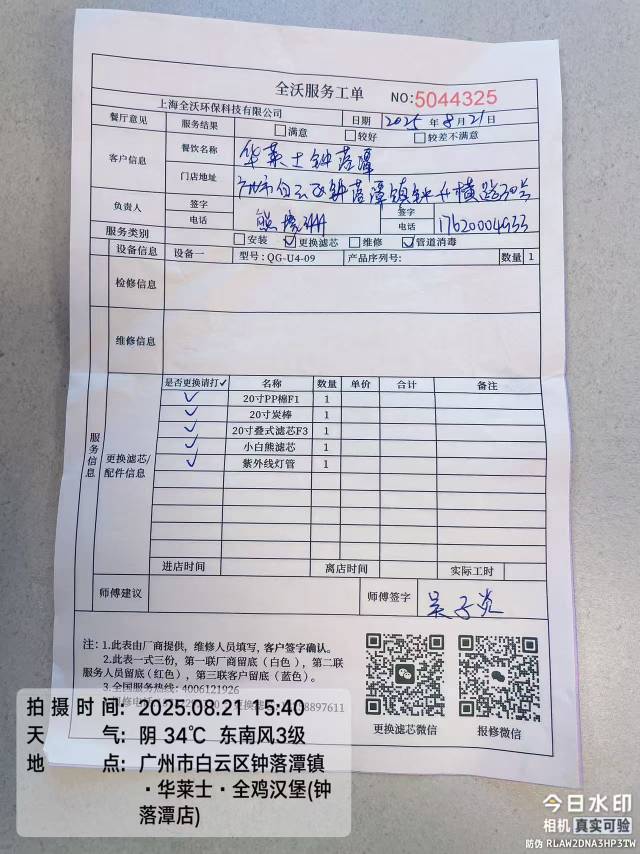 全沃服务工单
NO:5044325
上海全沃环保科技有限公司 日期 2025 年 8 月 21 日
餐厅意见 服务结果 满意 较好 较差不满意
客户信息 餐饮名称 华莱士钟落潭
门店地址 广州市白云区钟落潭镇钟升横路30号
负责人 签字 电话 熊 签字 电话 17620004933
服务类别 安装 更换滤芯 维修 管道消毒
设备信息 设备一 型号: QG-U4-09 产品序列号: 数量 1
检修信息
维修信息
服务信息
更换滤芯/配件信息
是否更换请打✓ 名称 数量 单价 合计 备注
✓ 20寸PP棉F1 1
✓ 20寸炭棒 1
✓ 20寸叠式滤芯F3 1
✓ 小白熊滤芯 1
✓ 紫外线灯管 1
进店时间 离店时间 实际工时
师傅建议 师傅签字 吴子炎
注: 1.此表由厂商提供, 维修人员填写, 客户签字确认。
2.此表一式三份, 第一联厂商留底(白色), 第二联
服务人员留底(红色), 第三联客户留底(蓝色)。
3.全国服务热线: 4006121926
8897611
更换滤芯微信 报修微信
拍摄时间: 2025.08.21 15:40
天气: 阴 34℃ 东南风3级
地点: 广州市白云区钟落潭镇
·华莱士·全鸡汉堡(钟
落潭店)
今日水印
相机 真实可验
防伪 RLAW2DNA3HP3TW